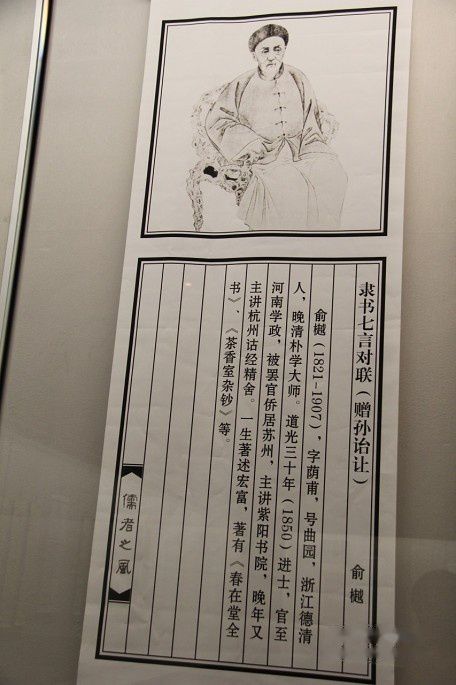 隶书七言对联（赠孙诒让）
俞樾
俞樾（1821-1907），字荫甫，号曲园，浙江德清
人，晚清朴学大师。道光三十年（1850）进士，官至
河南学政，被罢官侨居苏州，主讲紫阳书院，晚年又
主讲杭州诂经精舍。一生著述宏富，著有《春在堂全
书》、《茶香室杂钞》等。
儒者之风